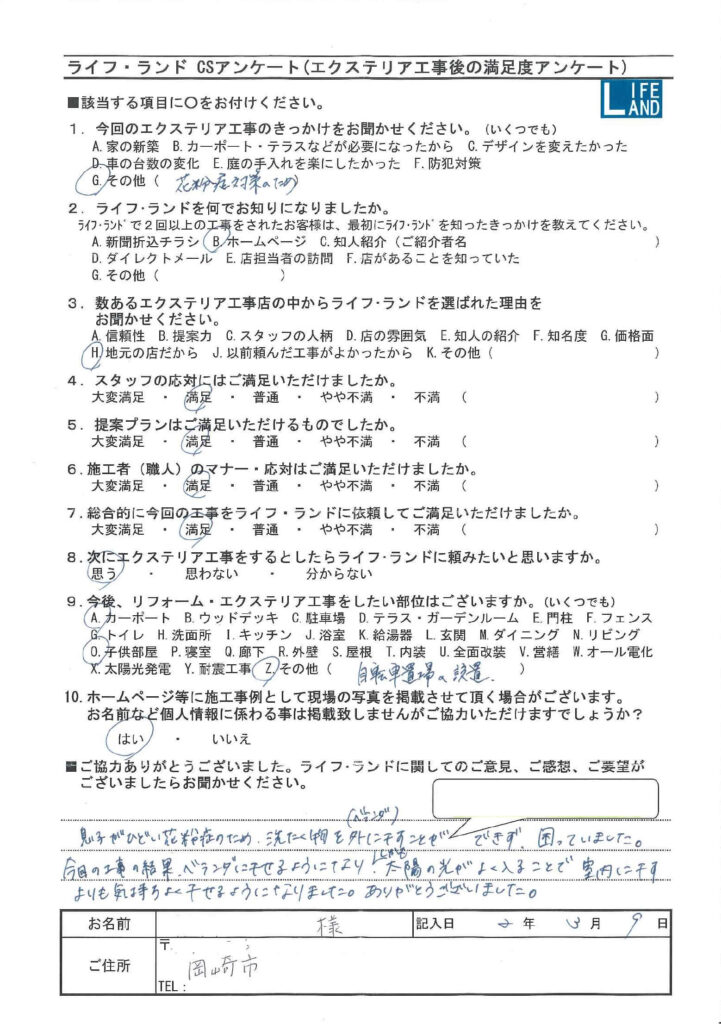 ライフ・ランド CSアンケート(エクステリア工事後の満足度アンケート)
LIFE LAND
■該当する項目に〇をお付けください。
1．今回のエクステリア工事のきっかけをお聞かせください。（いくつでも）
A.家の新築 B.カーポート・テラスなどが必要になったから C.デザインを変えたかった
D.車の台数の変化 E.庭の手入れを楽にしたかった F.防犯対策
G.その他（ 花粉症対策のため
2．ライフ・ランドを何でお知りになりましたか。
ﾗｲﾌ･ﾗﾝﾄﾞで2回以上の工事をされたお客様は、最初にﾗｲﾌ･ﾗﾝﾄﾞを知ったきっかけを教えてください。
A.新聞折込チラシ B.ホームページ C.知人紹介（ご紹介者名 ）
D.ダイレクトメール E.店担当者の訪問 F.店があることを知っていた
G.その他（ ）
3．数あるエクステリア工事店の中からライフ・ランドを選ばれた理由を
お聞かせください。
A.信頼性 B.提案力 C.スタッフの人柄 D.店の雰囲気 E.知人の紹介 F.知名度 G.価格面
H.地元の店だから J.以前頼んだ工事がよかったから K.その他（ ）
4．スタッフの応対にはご満足いただけましたか。
大変満足 ・ 満足 ・ 普通 ・ やや不満 ・ 不満 （ ）
5．提案プランはご満足いただけるものでしたか。
大変満足 ・ 満足 ・ 普通 ・ やや不満 ・ 不満 （ ）
6．施工者（職人）のマナー・応対はご満足いただけましたか。
大変満足 ・ 満足 ・ 普通 ・ やや不満 ・ 不満 （ ）
7．総合的に今回の工事をライフ・ランドに依頼してご満足いただけましたか。
大変満足 ・ 満足 ・ 普通 ・ やや不満 ・ 不満 （ ）
8．次にエクステリア工事をするとしたらライフ・ランドに頼みたいと思いますか。
思う ・ 思わない ・ 分からない
9．今後、リフォーム・エクステリア工事をしたい部位はございますか。（いくつでも）
A.カーポート B.ウッドデッキ C.駐車場 D.テラス・ガーデンルーム E.門柱 F.フェンス
G.トイレ H.洗面所 I.キッチン J.浴室 K.給湯器 L.玄関 M.ダイニング N.リビング
O.子供部屋 P.寝室 Q.廊下 R.外壁 S.屋根 T.内装 U.全面改装 V.営繕 W.オール電化
X.太陽光発電 Y.耐震工事 Z.その他（ 自転車置場の設置. ）
10．ホームページ等に施工事例として現場の写真を掲載させて頂く場合がございます。
お名前など個人情報に係わる事は掲載致しませんがご協力いただけますでしょうか？
はい ・ いいえ
■ご協力ありがとうございました。ライフ・ランドに関してのご意見、ご感想、ご要望が
ございましたらお聞かせください。
(ベランダ)
息子がひどい花粉症のため、洗たく物を外に干すことが できず、困っていました。
今回の工事の結果、ベランダに干せるようになり、しかも太陽の光がよく入ることで室内に干す
よりも気持ちよく干せるようになりました。ありがとうございました。
お名前 様 記入日 2 年 3 月 9 日
ご住所 〒
岡崎市
TEL：